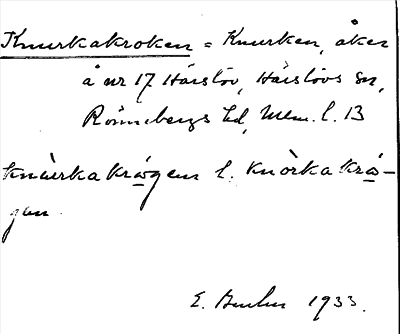 Knurkakroken = Knurken, åker
å nr 17 Härslöv, Härslövs sn,
Rönnebergs hd, Mlm. l. 13
knùrka krågen l. knòrka krå-
gen.
E. 1933.